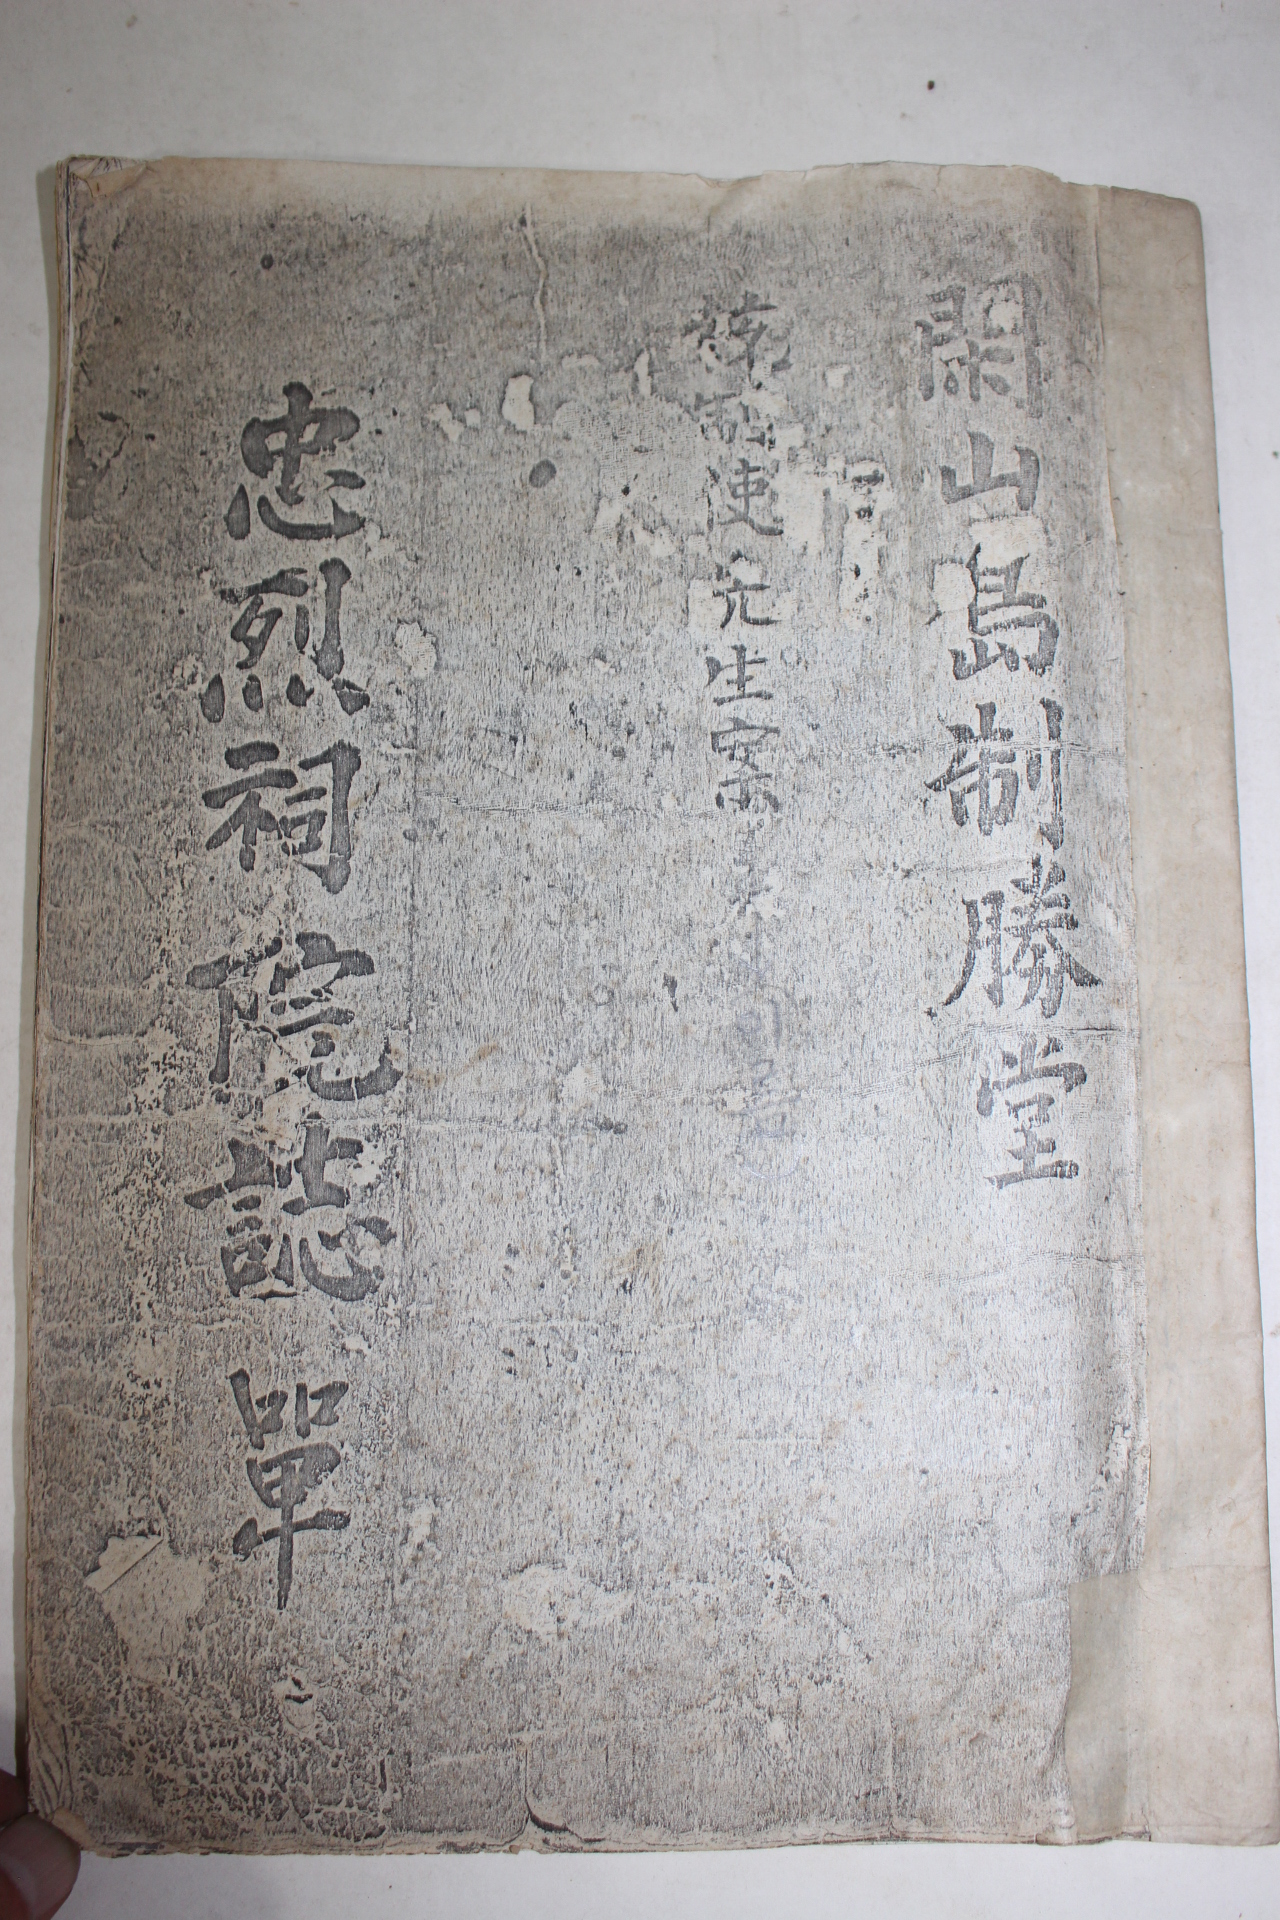 閑山島制勝堂
統制使先生案
忠烈祠院誌單